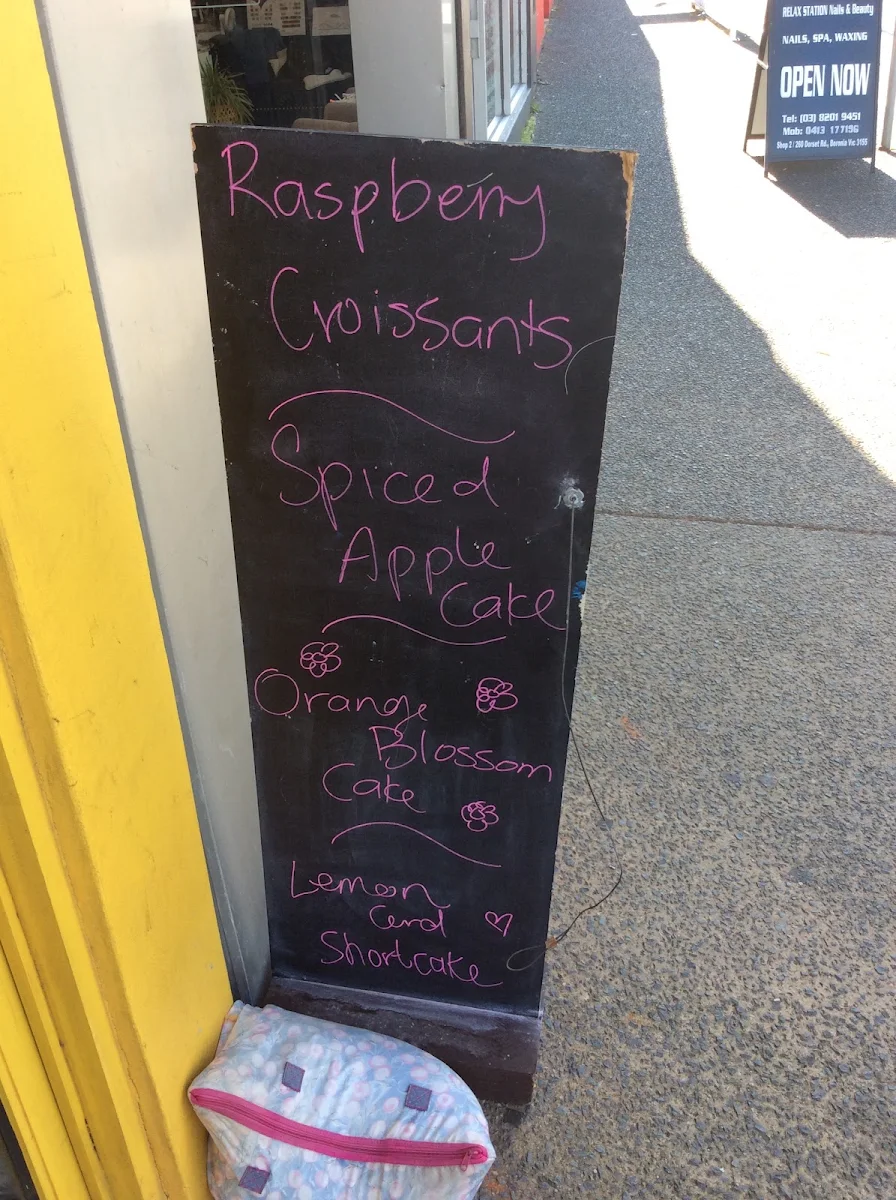 Raspberry
Croissants
Spiced
Apple
Cake
Orange
Blossom
Cake
Lemon
Curd
Shortcake
RELAX STATION Nails & Beauty
NAILS, SPA, WAXING
OPEN NOW
Tel: (03) 8201 9451
Mob: 0413 177196
Shop 2 / 260 Dorset Rd., Boronia Vic 3155